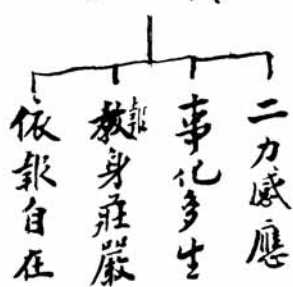 二力感應
事化多生
教報身莊嚴
依報自在